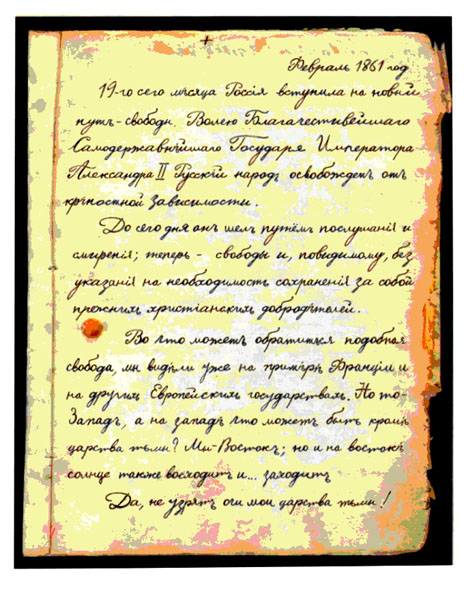 Февраль 1861 год
19-го сего мѣсяца Россія вступила на новый
путь-свободы. Волею Благачестивейшаго
Самодержавнѣйшаго Государя Императора
Александра II Русскій народъ освобожденъ отъ
крѣпостной зависимости.
До сегодня онъ шелъ путёмъ послушанія и
смиренія; теперь - свободы и, повидимому, без
указанія на необходимость сохраненія за собой
прежнихъ христіанскихъ добродѣтелей.
Во что можетъ обратиться подобная
свобода, мы видѣли уже на примѣрѣ Франціи и
на другихъ Европейскихъ государствахъ. Но то-
Западъ, а на западѣ что можетъ быть кромѣ
царства тьмы? Мы-Востокъ; но и на востокѣ
солнце также восходитъ и... заходитъ
Да, не узрятъ очи мои царства тьмы!